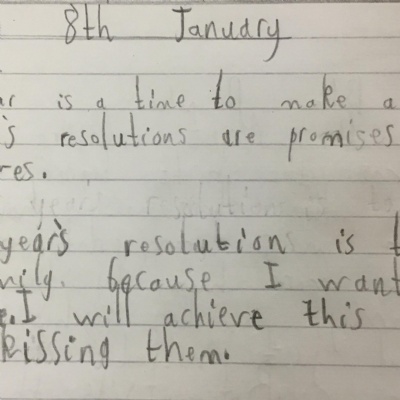 8th January
is a time to make a
resolutions are promises
year's resolution is
because I want
I will achieve this
kissing them.